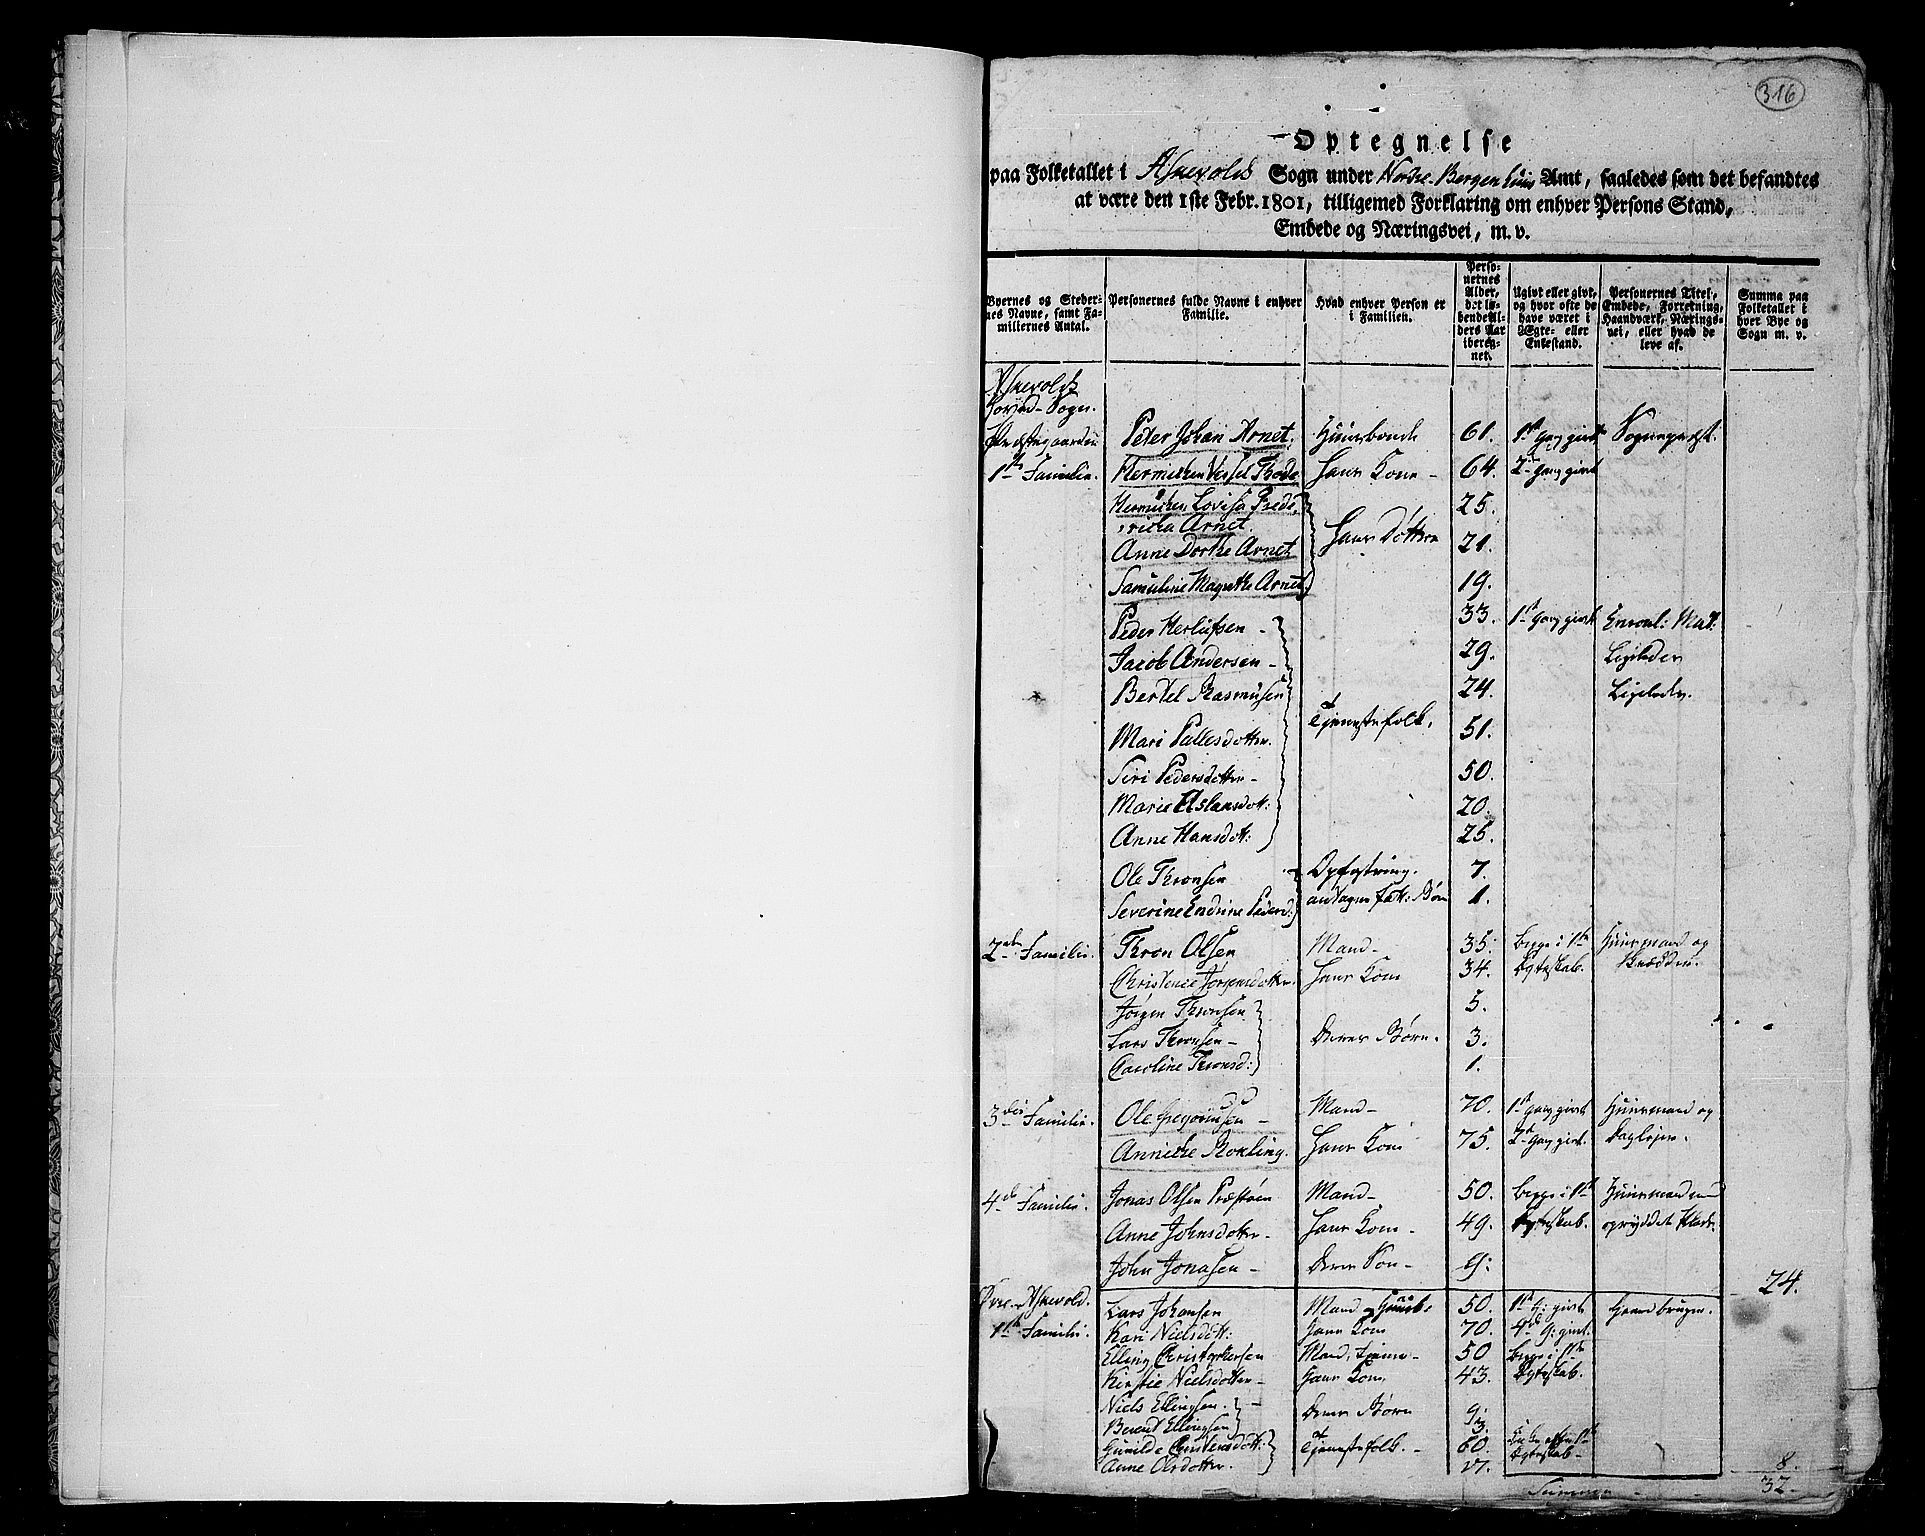 316
Optegnelse
paa Folketallet i Askevolds Sogn under Nordre-Bergenhuus Amt, saaledes som det befandtes
at være den 1ste Febr. 1801, tilligemed Forklaring om enhver Persons Stand,
Embede og Næringsvei, m. v.
Byernes og Steder-
nes Navne, samt Fa-
miliernes Antal.
Personernes fulde Navne i enhver
Familie.
Hvad enhver Person er
i Familien.
Perso-
nernes
Alder,
det lø-
bende Al-
ders Aar
ibereg-
net.
Ugivt eller givt,
og hvor ofte de
have været i
Ægte- eller
Enkestand.
Personernes Titel,
Embede, Forretning,
Haandværk, Nærings-
vei, eller hvad de
leve af.
Summa paa
Folketallet i
hver Bye og
Sogn m. v.
Askevolds
Hoved-Sogn.
Præstegaarden Peder Johan Arnet. Huusbonde 61. 1ste Gang givt Sognepræst.
1ste Familie. Hermichen Vessel Thode Hans Kone 64. 2den Gang givt
Hermichen Lovisa Frede- 25.
ricka Arnet.
Anne Dorthe Arnet Hans Døttre 21.
Samuline Magrethe Arnet 19.
Peder Herlufsen 33. 1ste Gang givt Enroul: Mat:
Jacob Andersen 29. Ligeledes
Bertel Rasmusen 24. Ligeledes.
Mari Pallesdotter. Tjenestefolk. 51.
Siri Pedersdotter 50.
Marie Aslaksdott: 20.
Anne Hansdott: 25.
Ole Thronsen Opfostring. 7.
Severine Endrine Pedersd: antagne fatt: Børn 1.
2den Familie. Thron Olsen Mand 35. begge i 1ste Huusmand og
Christence Jørgensdotter. Hans Kone 34. Ægteskab. Skrædder.
Jørgen Thronsen 5.
Lars Thronsen Deres Børn. 3.
Caroline Thronsd: 1.
3die Familie. Ole Gregoriusen Mand 70. 1ste Gang givt Huusmand og
Anniche Rokling. Hans Kone 75. 2den Gang givt. Dagleier.
4de Familie. Jonas Olsen Præstøen Mand 50. begge i 1ste Huusmand
Anne Johnsdotter Hans Kone 49. Ægteskab. opryddet Plads.
John Jonasen Deres Søn 9.
24.
Øvre-Askevold. Lars Johansen Mand Huusb: 50. 1ste G: givt Gaardbruger.
1ste Familie. Kari Nielsdott: Hans Kone 70. 4de G: givt.
Elling Christophersen Mand, tjener 50 begge i 1ste
Kirstie Nielsdotter Hans Kone, 43. Ægteskab.
Niels Ellingsen. Deres Børn 9.
Berent Ellingsen 3.
Gunilde Christensdott: Tjenestefolk. 60. Enke efter 1ste
Anne Olsdotter. Ægteskab
8.
Summa 32